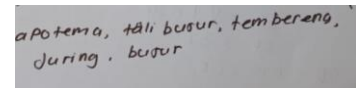 apotema, tali busur, tembereng,
juring. busur